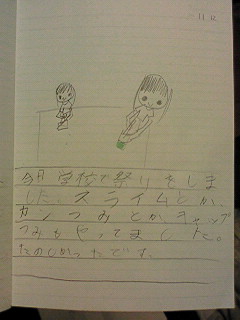 11.12
今日学校で祭りをしま
した。スライムとか、
カンつみとかキャップ
つみもやってました。
たのしかったです。